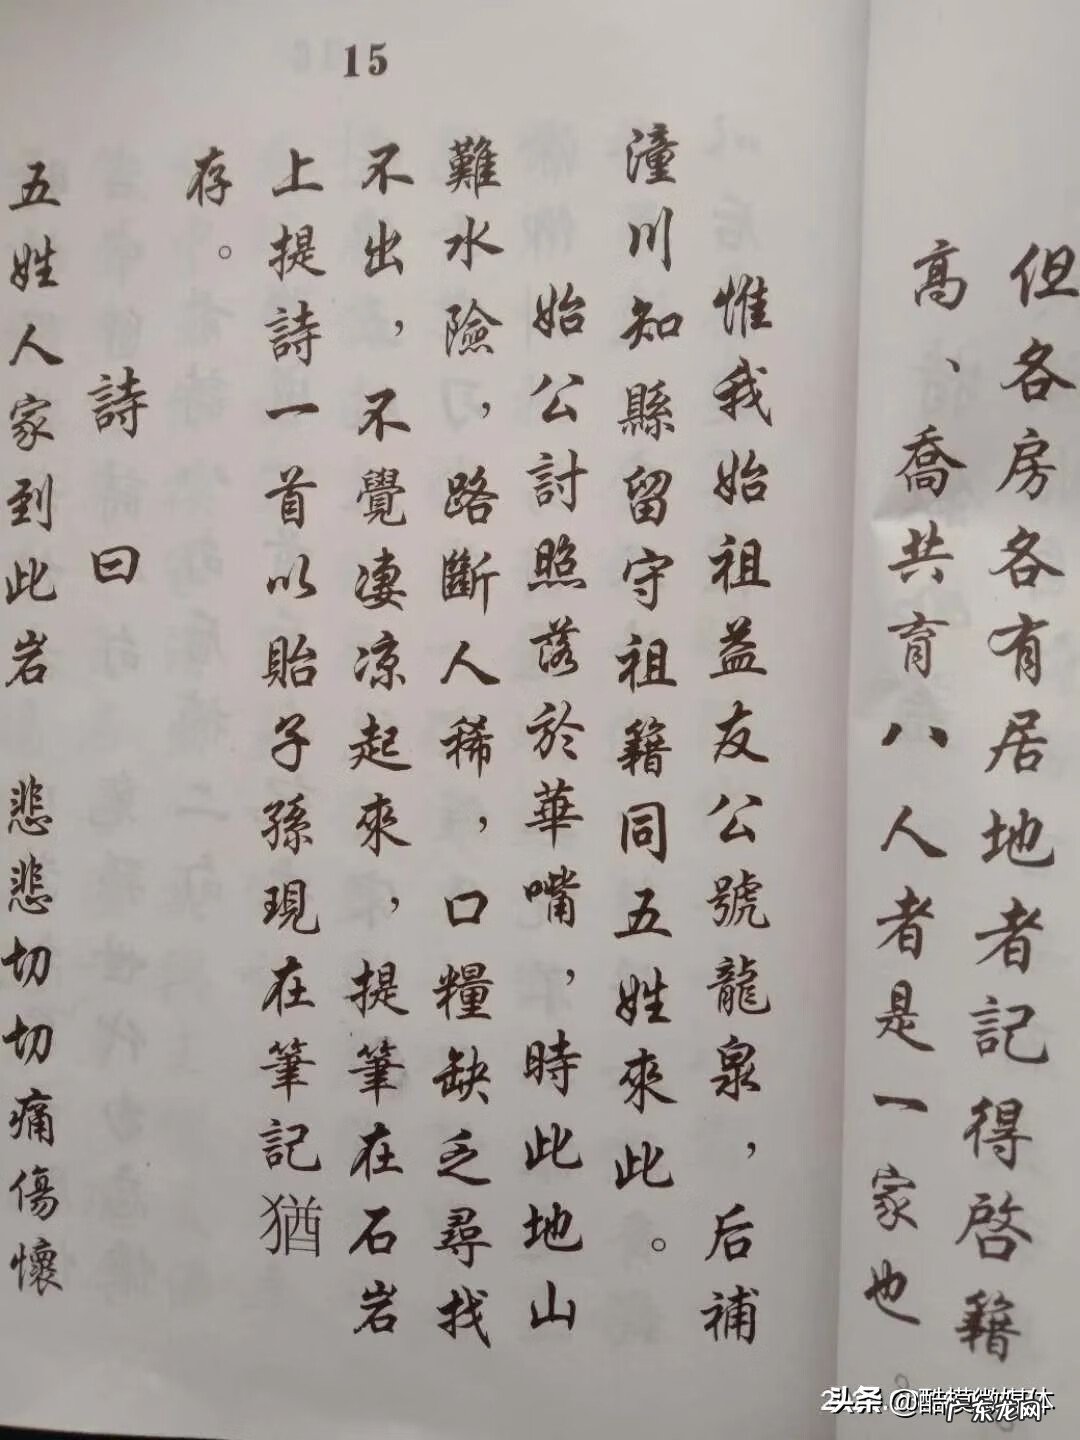 但各房各有居地者記得啓籍
高、喬共育八人者是一家也。
15
惟我始祖益友公號龍泉，后補
潼川知縣留守祖籍同五姓來此。
始公討照落於華嘴，時此地山
難水險，路斷人稀，口糧缺乏尋找
不出，不覺凄凉起來，提筆在石岩
上提詩一首以貽子孫現在筆記猶
存。
詩曰
五姓人家到此岩 悲悲切切痛傷懷
头条 @酷模微媒体
广东龙网